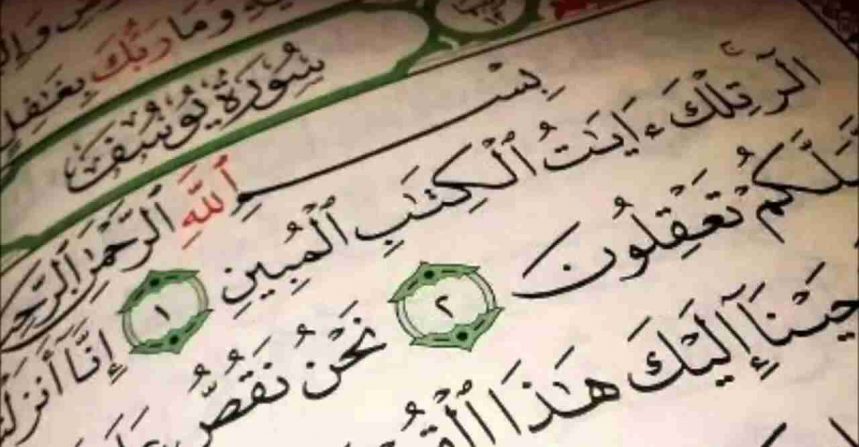 وَمَا رَبُّكَ بِغَٰفِلٍ
سُورَةُ يُوسُفَ
بِسْمِ ٱللَّهِ ٱلرَّحْمَٰنِ ٱلرَّحِ
الٓر تِلْكَ ءَايَٰتُ ٱلْكِتَٰبِ ٱلْمُبِينِ ١ إِنَّآ أَنزَلْ
عَلَّكُمْ تَعْقِلُونَ ٢ نَحْنُ نَقُصُّ
حَيْنَآ إِلَيْكَ هَٰذَا ٱلْقُ